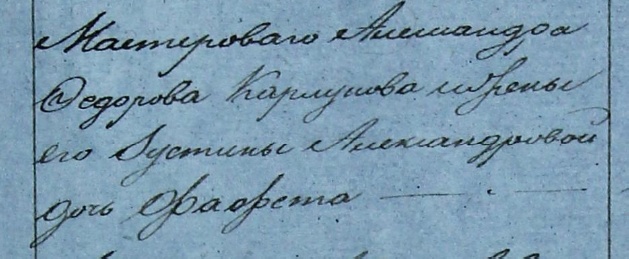 Мастероваго Александра
Федорова Карпунова и жены
его Iустины Александровой
дочь